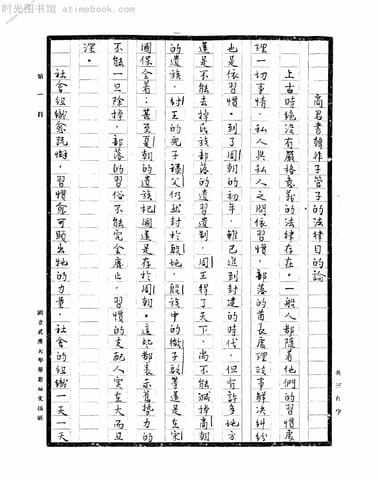 时光图书馆 atimebook.com
商君書韓非子管子的法律目的論
上古時絕沒有嚴格意義的法律存在。一般人都隨着他們的習慣處
理一切事情，私人與私人之間依習慣，部落的酋長處理政事解決糾紛
也是依習慣。到了周朝的初年，雖已進到封建的時代，但有許多地方
還是不能去掉氏族部落的遺習遺制，周王得了天下，尚不能滅掉商朝
的遺族，紂王的兒子祿父仍然封於殷地，殷族中的微子啟等還是在宋
國保全着；甚至夏朝的遺族杞國還是存於周朝。這些都表示舊勢力的
不能一旦除掉，部落的習俗不能完全廢止，習慣的支配人實在大而且
深。
社會組織愈疏懈，習慣愈可顯出牠的力量，社會的組織一天一天
第 一 頁
國立武漢大學畢業論文稿紙
共三百字
时光图书馆 atimebook.com